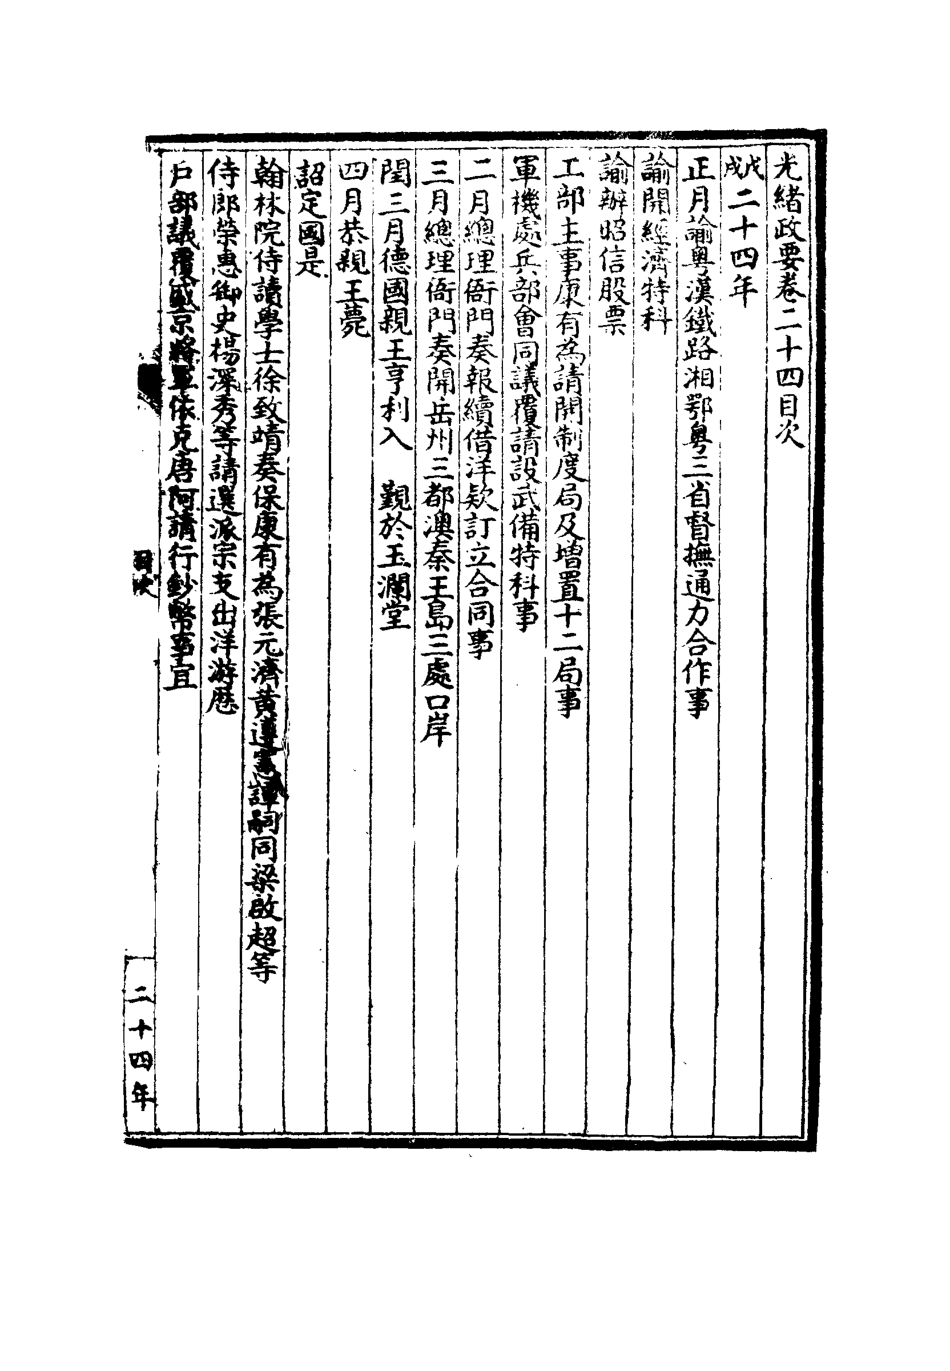 光緒政要卷二十四目次
戊戌二十四年
正月諭粤漢鐵路湘鄂粤三省督撫通力合作事
諭開經濟特科
諭辦昭信股票
工部主事康有為請開制度局及增置十二局事
軍機處兵部會同議覆請設武備特科事
二月總理衙門奏報續借洋欵訂立合同事
三月總理衙門奏開岳州三都澳秦王島三處口岸
閏三月德國親王亨利入　覲於玉瀾堂
四月恭親王薨
詔定國是
翰林院侍讀學士徐致靖奏保康有為張元濟黄遵憲譚嗣同梁啟超等
侍郎榮惠御史楊深秀等請選派宗支出洋游歷
戶部議覆盛京將軍依克唐阿請行鈔幣事宜
目次
二十四年